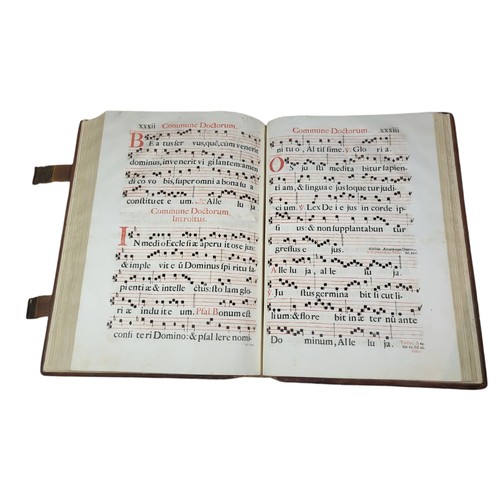 xxxii Commune Doctorum.
BEatus ser vus, quē, cum venerit
dominus, invenerit vi gi lantem: amen
di co vo bis, super omni a bona su a
constitu et e um. Alle lu ja.
Commune Doctorum.
Introitus.
IN medio Eccle siæ aperu it os e jus:
& imple vit e ū Dominus spi ritu sa
pi enti æ & intelle ctus: sto lam glo
ri æ indu it e um. Psal. Bonum est
confi te ri Domino: & psal lere nomi-
Commune Doctorum. xxxiii
ni tu o, Al tis sime. V. Glo ri a.
OS justi medita bitur sapien-
ti am, & lingua e jus loque tur judi-
ci um. V. Lex De i e jus in corde ip-
si us: & non supplantabun tur
gressus e jus.
Alle lu ja, alle lu ja.
V. Ju stus germina bit si cut li-
lium: & flore bit in æ ter nū ante
Do minum, Alle lu ja.